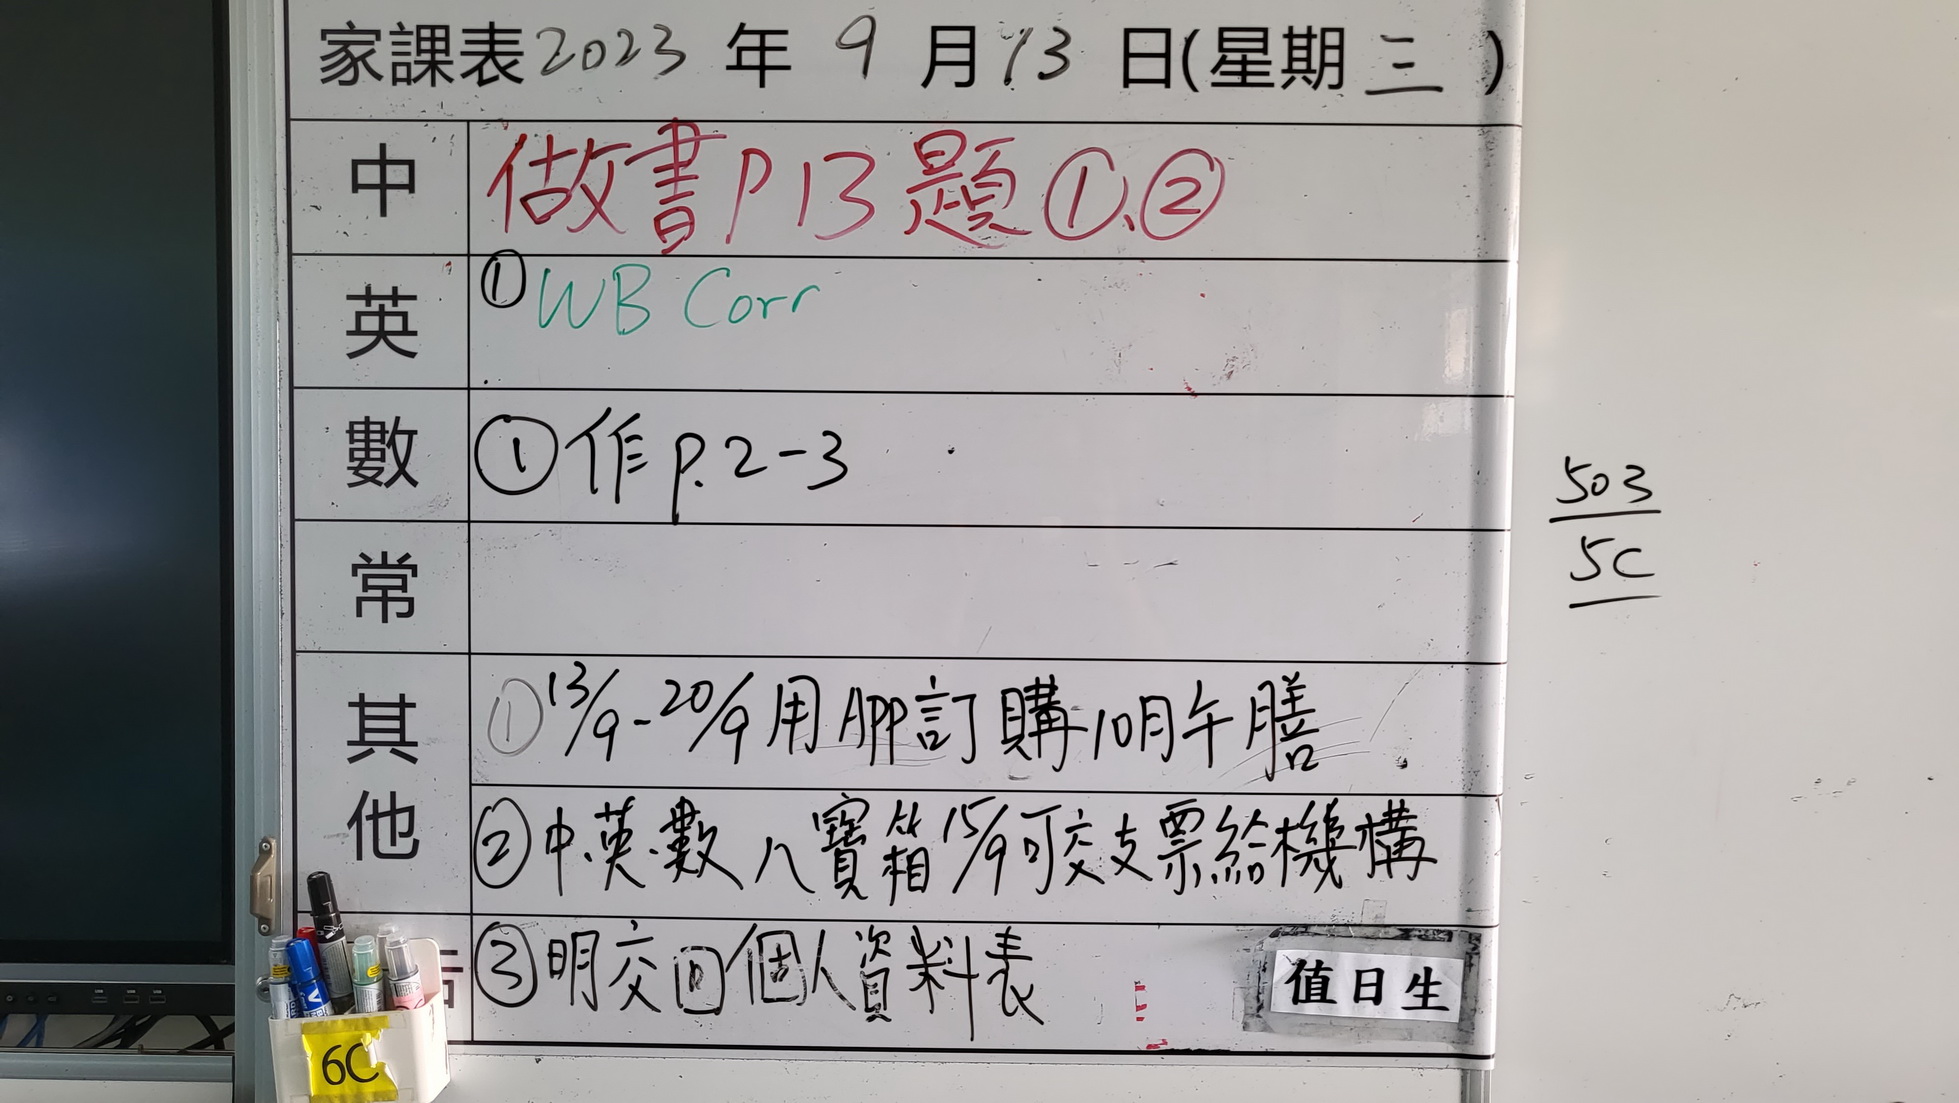 家課表2023 年 9 月 13 日(星期 三 )
中 做書P13題①、②
英 ①WB Corr
數 ①作p.2-3
常
其他 ①13/9-20/9用APP訂購10月午膳
②中.英.數八寶箱15/9可交支票給機構
③明交回個人資料表
值日生
6C
503
5C